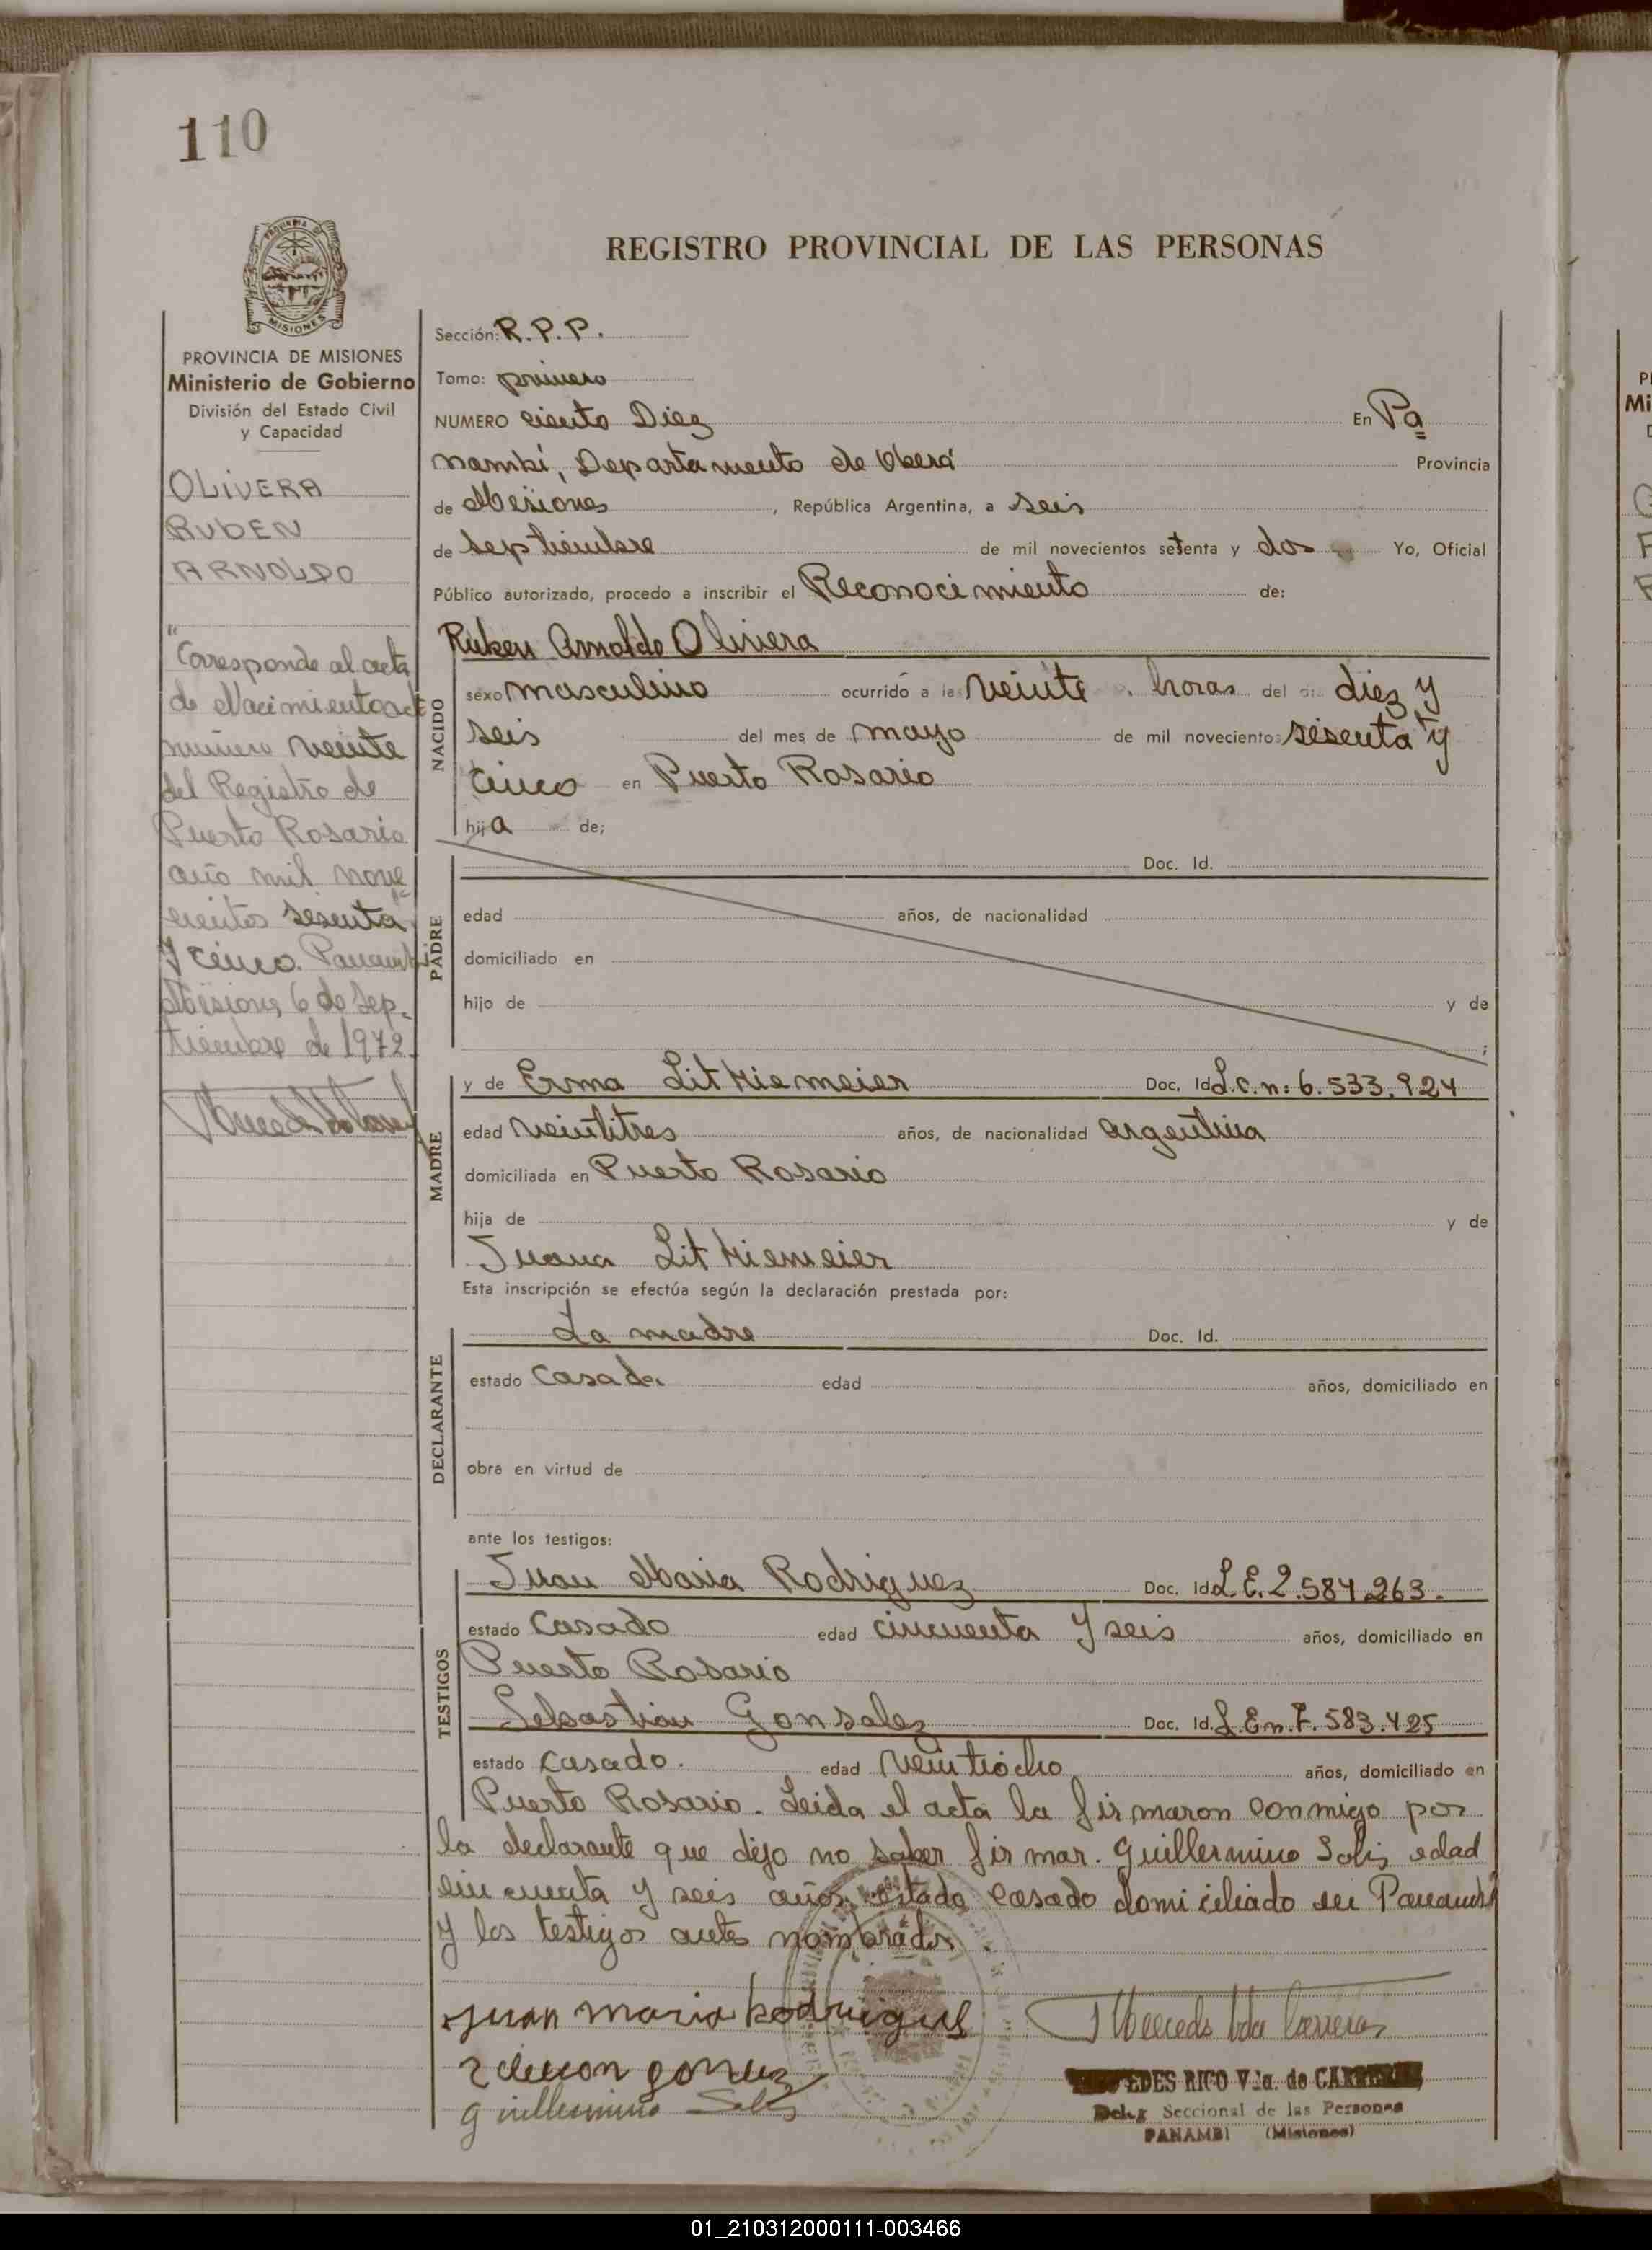 110
PROVINCIA DE
MISIONES
REGISTRO PROVINCIAL DE LAS PERSONAS
PROVINCIA DE MISIONES
Ministerio de Gobierno
División del Estado Civil
y Capacidad
OLIVERA
RUBEN
ARNOLDO
"Corresponde al acta
de Nacimiento act
número veinte
del Registro de
Puerto Rosario
año mil nove
cientos sesenta
y cinco. Panambí
Misiones 6 de Sep-
tiembre de 1972.
Sección: R.P.P.
Tomo: primero
NUMERO ciento Diez En Pa
nambí, Departamento de Oberá Provincia
de Misiones, República Argentina, a seis
de septiembre de mil novecientos setenta y dos Yo, Oficial
Público autorizado, procedo a inscribir el Reconocimiento de:
Ruben Arnoldo Olivera
NACIDO
sexo masculino ocurrido a las veinte horas del di diez y
seis del mes de mayo de mil noveciento: sesenta y
cinco en Puerto Rosario
hija de;
PADRE
Doc. Id.
edad años, de nacionalidad
domiciliado en
hijo de y de
;
MADRE
y de Erma Litkiemeier Doc. Id L.c.n: 6.533.924
edad veintitres años, de nacionalidad argentina
domiciliada en Puerto Rosario
hija de y de
Juana Litkiemeier
Esta inscripción se efectúa según la declaración prestada por:
DECLARANTE
La madre Doc. Id.
estado casada edad años, domiciliado en
obra en virtud de
ante los testigos:
TESTIGOS
Juan Maria Rodriguez Doc. Id L.E.2.584.263.
estado casado edad cincuenta y seis años, domiciliado en
Puerto Rosario
Sebastian Gonsalez Doc. Id. L.E n.7.583.425
estado casado. edad veintiocho años, domiciliado en
Puerto Rosario. Leida el acta la firmaron conmigo por
la declarante que dijo no saber firmar. Guillermino Solis edad
cincuenta y seis años, estado casado domiciliado en Panambí
y los testigos antes nombrados.
Juan maria Rodriguez
Guillermino Solis
EDES RICO Vda. de
Deleg Seccional de las Personas
PANAMBI (Misiones)
01_210312000111-003466